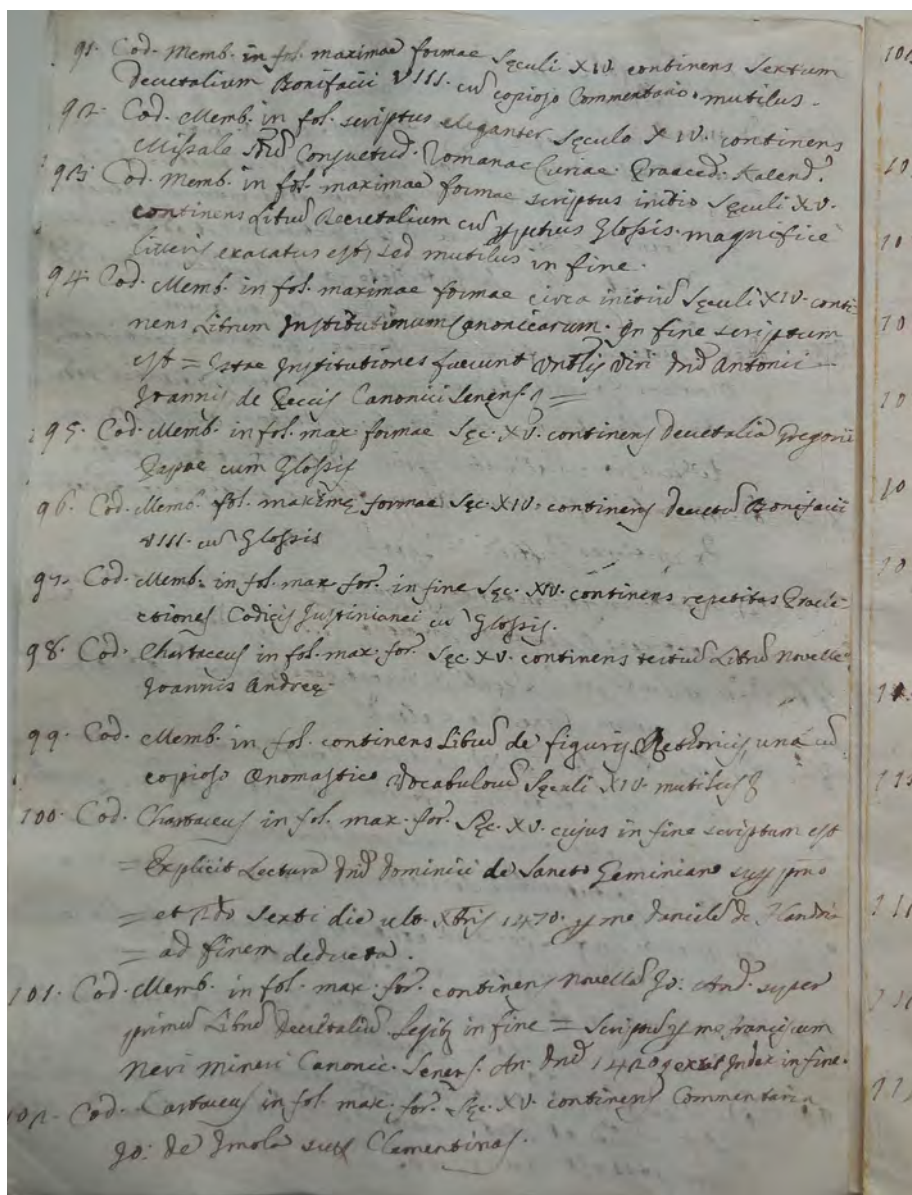 91. Cod. Memb. in fol. maximae formae Sęculi XIV. continens Sextum
Decretalium Bonifacii VIII. cũ copioso Commentario. mutilus.
92. Cod. Memb. in fol. scriptus eleganter Sęculo XIV. continens
Missale Consuetud. Romanae Curiae. Praeced. Kalend.
93. Cod. Memb. in fol. maximae formae scriptus initio Sęculi XV.
continens Librũ Decretalium cũ Glossis. magnificè
litteris exaratus est, sed mutilus in fine.
94. Cod. Memb. in fol. maximae formae circa initiũ Sęculi XIV. conti-
nens Librum Institutionum Canonicarum. In fine scriptum
est = Istae Institutiones fuerunt Viri Dnĩ Antonii
Joannis de Canonici Senens. =
95. Cod. Memb. in fol. max. formae Sęc. XV. continens Decretalia Gregorii
Papae cum Glossis
96. Cod. Memb. fol. maximę formae Sęc. XIV. continens Decretũ Bonifacii
VIII. cũ Glossis
97. Cod. Memb. in fol. max. for. in fine Sęc. XV. continens repetitas Praele-
ctiones Codicis Justinianei cũ Glossis.
98. Cod. Chartaceus in fol. max. for. Sęc. XV. continens tertiũ Librũ Novellę
Joannis Andreę.
99. Cod. Memb. in fol. continens Librũ de figuris Rethoricis, unà cũ
copioso Onomastico Vocabulorũ Sęculi XIV. mutilus
100. Cod. Chartaceus in fol. max. for. Sęc. XV. cujus in fine scriptum est
= Explicit Lectura Dnĩ Dominici de Sancto Geminiano sup pmo
= et Sexti die ult. Xbris 1470. p me Daniele de Flandria
= ad finem deducta.
101. Cod. Memb. in fol. max. for. continens Novellã Jo: And. super
primũ Librũ Decretaliũ. in fine = Scriptũ p me Franciscum
Neri Canonic. Senens. An. Dnĩ extat Index in fine.
102. Cod. Cartaceus in fol. max. for. Sęc. XV. continens Commentaria
Jo: de Imola sup Clementinas.